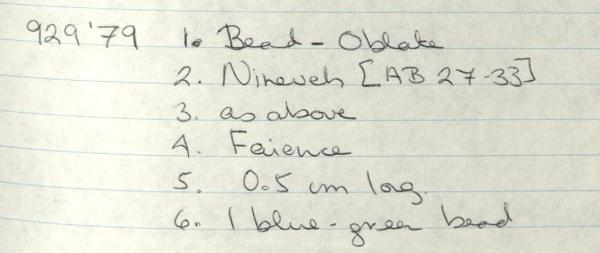 929'79 1. Bead - Oblate
2. Nineveh [AB 27-33]
3. as above
4. Faience
5. 0.5 cm long.
6. 1 blue-green bead